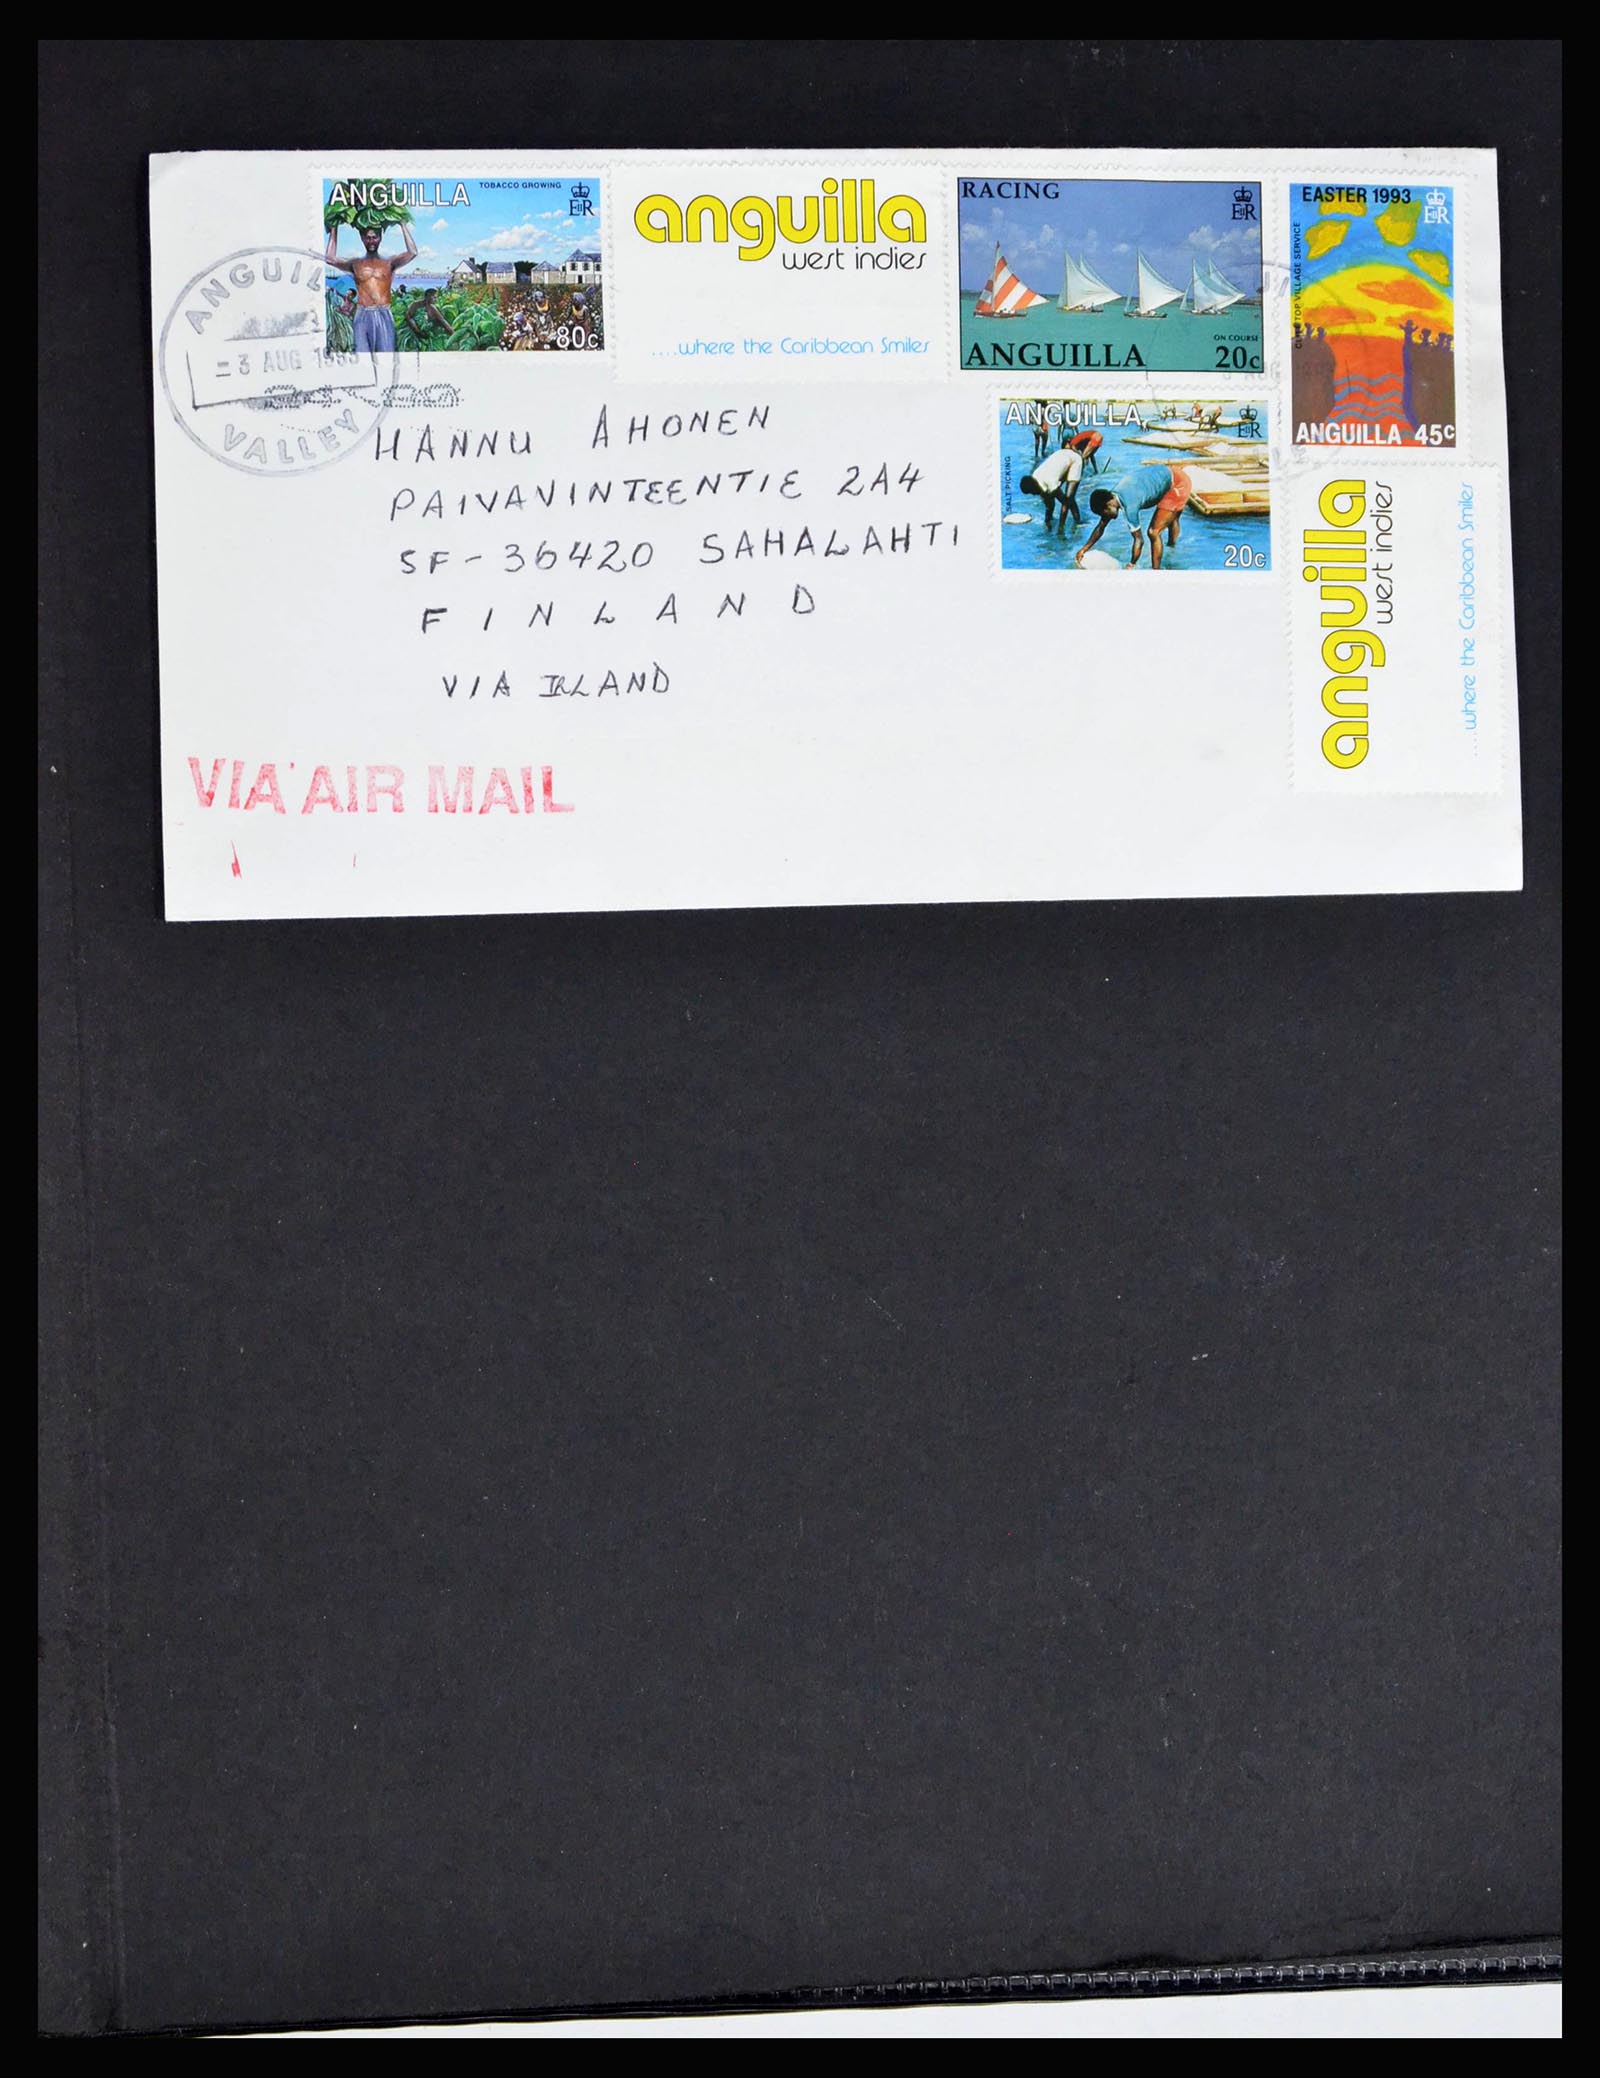 ANGUILLA
TOBACCO GROWING
EIIR
80c
anguilla
west indies
....where the Caribbean Smiles
RACING
EIIR
ON COURSE
ANGUILLA 20c
EASTER 1993
EIIR
VILLAGE SERVICE
ANGUILLA 45c
ANGUILLA
EIIR
SALT PICKING
20c
anguilla
west indies
....where the Caribbean Smiles
ANGUIL
3 AUG 1993
VALLEY
HANNU AHONEN
PAIVAVINTEENTIE 2A4
SF-36420 SAHALAHTI
FINLAND
VIA IRLAND
VIA AIR MAIL